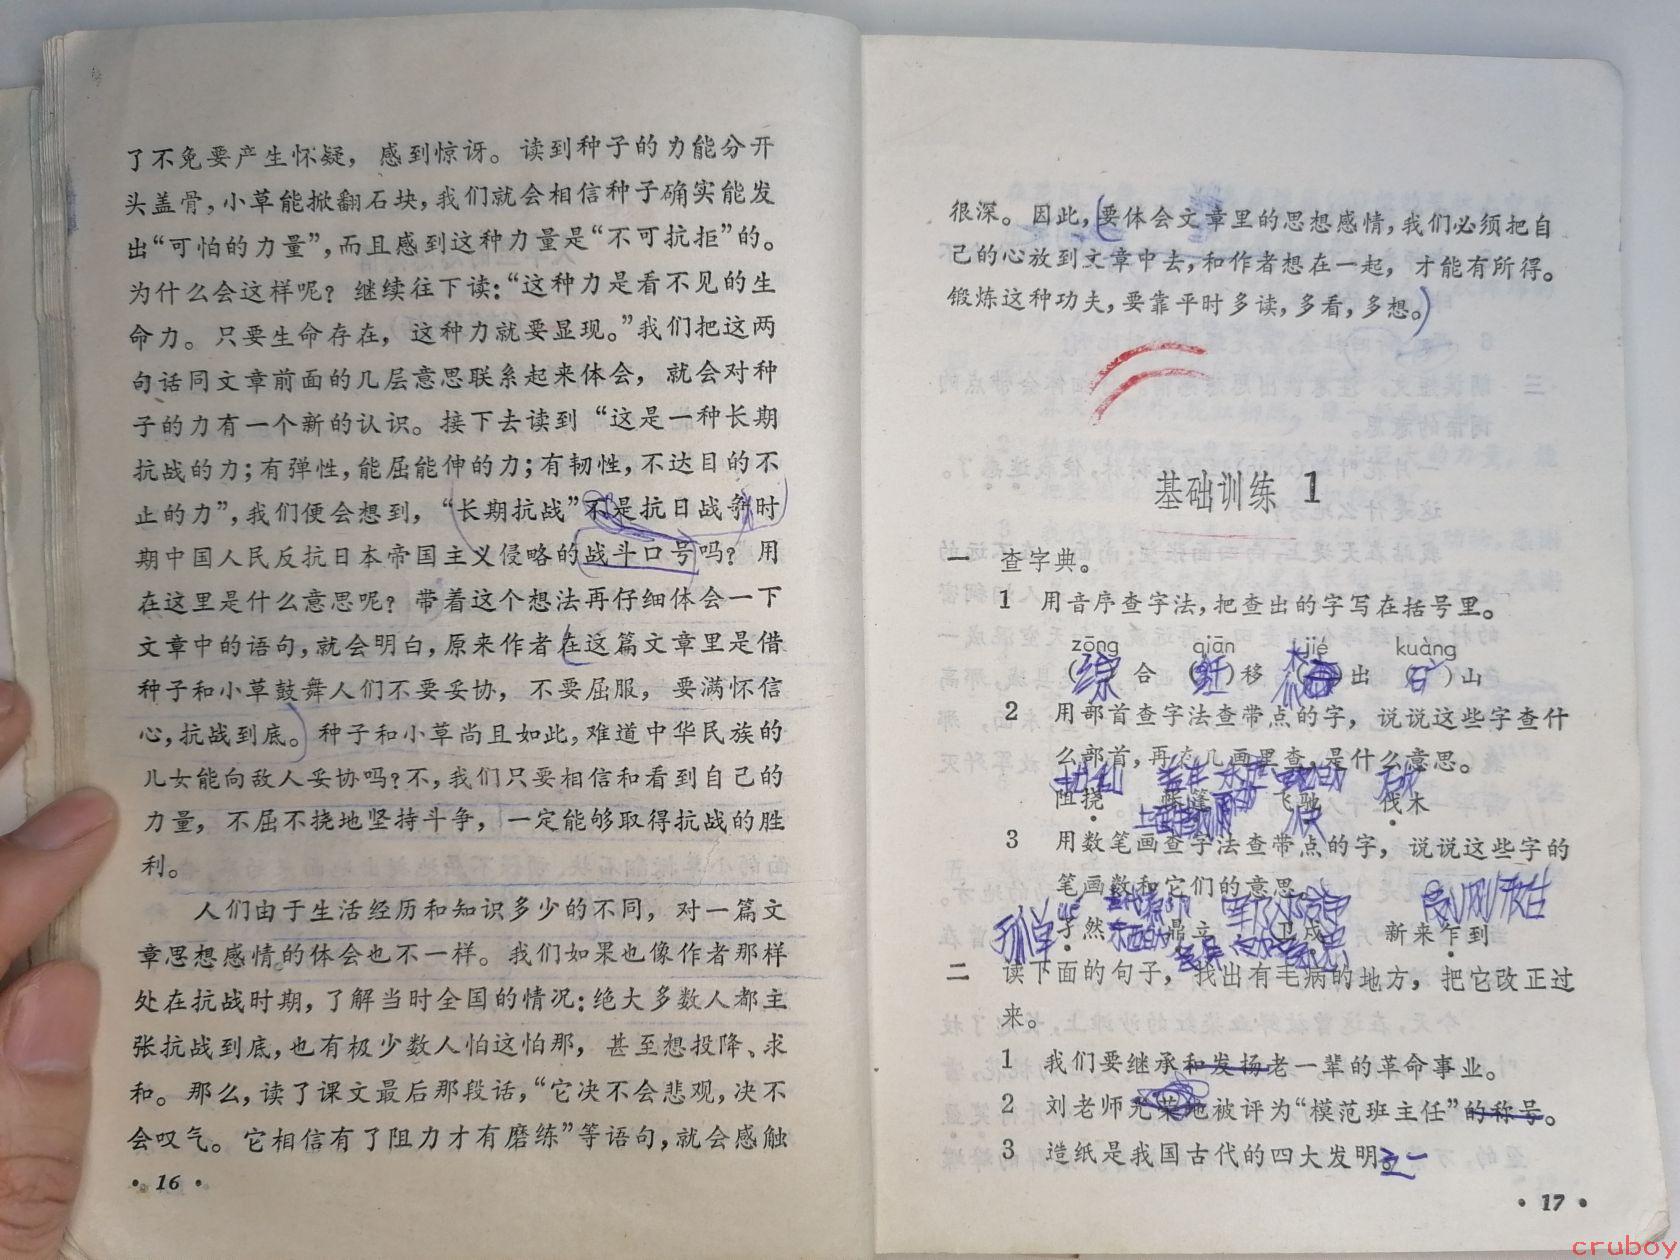 了不免要产生怀疑，感到惊讶。读到种子的力能分开
头盖骨，小草能掀翻石块，我们就会相信种子确实能发
出“可怕的力量”，而且感到这种力量是“不可抗拒”的。
为什么会这样呢？继续往下读：“这种力是看不见的生
命力。只要生命存在，这种力就要显现。”我们把这两
句话同文章前面的几层意思联系起来体会，就会对种
子的力有一个新的认识。接下去读到“这是一种长期
抗战的力；有弹性，能屈能伸的力；有韧性，不达目的不
止的力”，我们便会想到，“长期抗战”不是抗日战争时
期中国人民反抗日本帝国主义侵略的战斗口号吗？用
在这里是什么意思呢？带着这个想法再仔细体会一下
文章中的语句，就会明白，原来作者在这篇文章里是借
种子和小草鼓舞人们不要妥协，不要屈服，要满怀信
心，抗战到底。种子和小草尚且如此，难道中华民族的
儿女能向敌人妥协吗？不，我们只要相信和看到自己的
力量，不屈不挠地坚持斗争，一定能够取得抗战的胜
利。
人们由于生活经历和知识多少的不同，对一篇文
章思想感情的体会也不一样。我们如果也像作者那样
处在抗战时期，了解当时全国的情况：绝大多数人都主
张抗战到底，也有极少数人怕这怕那，甚至想投降、求
和。那么，读了课文最后那段话，“它决不会悲观，决不
会叹气。它相信有了阻力才有磨练”等语句，就会感触
· 16 ·
很深。因此，要体会文章里的思想感情，我们必须把自
己的心放到文章中去，和作者想在一起，才能有所得。
锻炼这种功夫，要靠平时多读，多看，多想。
基础训练 1
一 查字典。
1 用音序查字法，把查出的字写在括号里。
zōng qiān jié kuàng
（综）合 （迁）移 （ ）出 （矿）山
2 用部首查字法查带点的字，说说这些字查什
么部首，再查几画里查，是什么意思。
阻挠 帐篷 飞驰 伐木
3 用数笔画查字法查带点的字，说说这些字的
笔画数和它们的意思。
孤单
孑然 鼎立 卫戍 新来乍到
二 读下面的句子，找出有毛病的地方，把它改正过
来。
1 我们要继承和发扬老一辈的革命事业。
2 刘老师光荣地被评为“模范班主任”的称号。
3 造纸是我国古代的四大发明之一
· 17 ·
cruboy